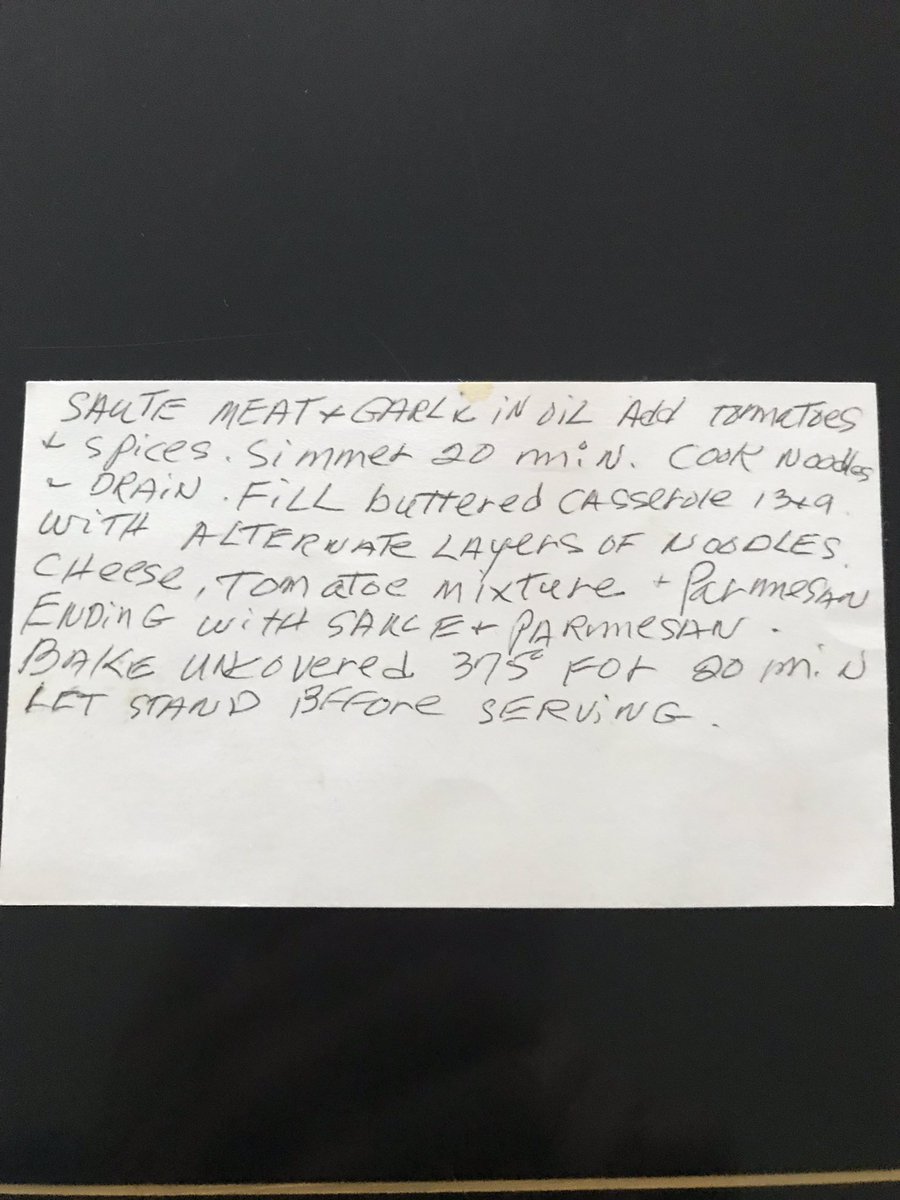 SAUTE MEAT + GARLIC IN OIL Add TOMATOES
+ SPICES. Simmer 20 min. COOK NOODLES
~ DRAIN. FILL buttered CASSEROLE 13x9
WITH ALTERNATE LAYERS OF NOODLES.
CHEESE, TOMATOE MIXTURE + PARMESAN
ENDING WITH SAUCE + PARMESAN.
BAKE UNCOVERED 375° FOR 20 MIN
LET STAND BEFORE SERVING.